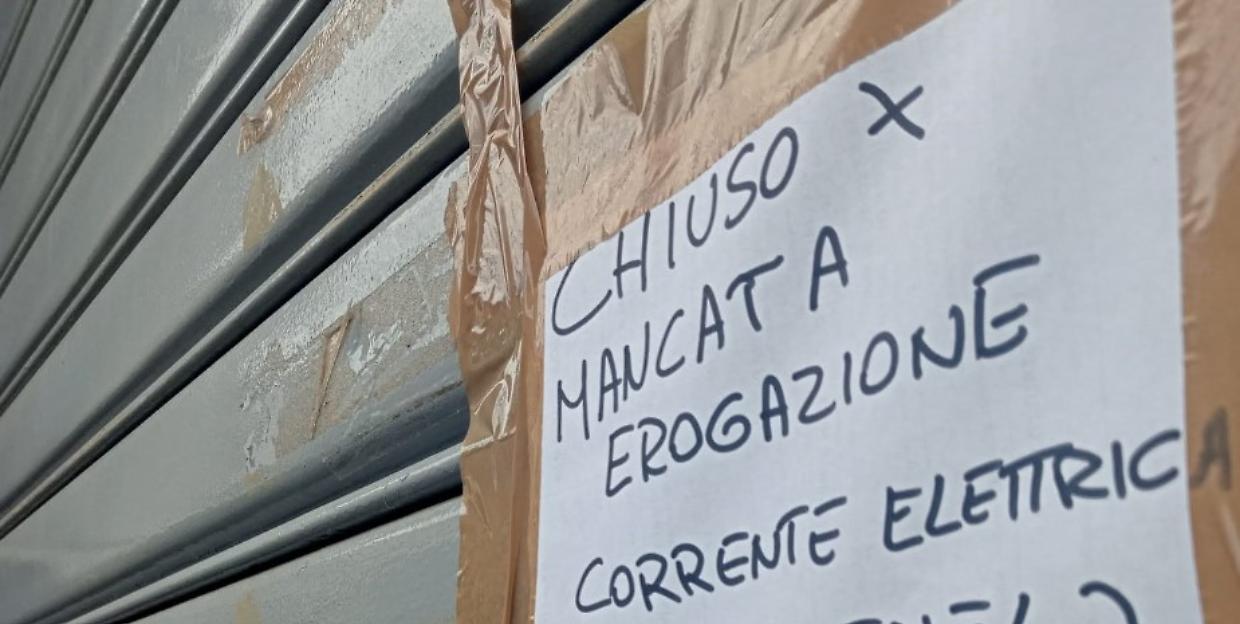 CHIUSO X
MANCATA
EROGAZIONE
CORRENTE ELETTRICA